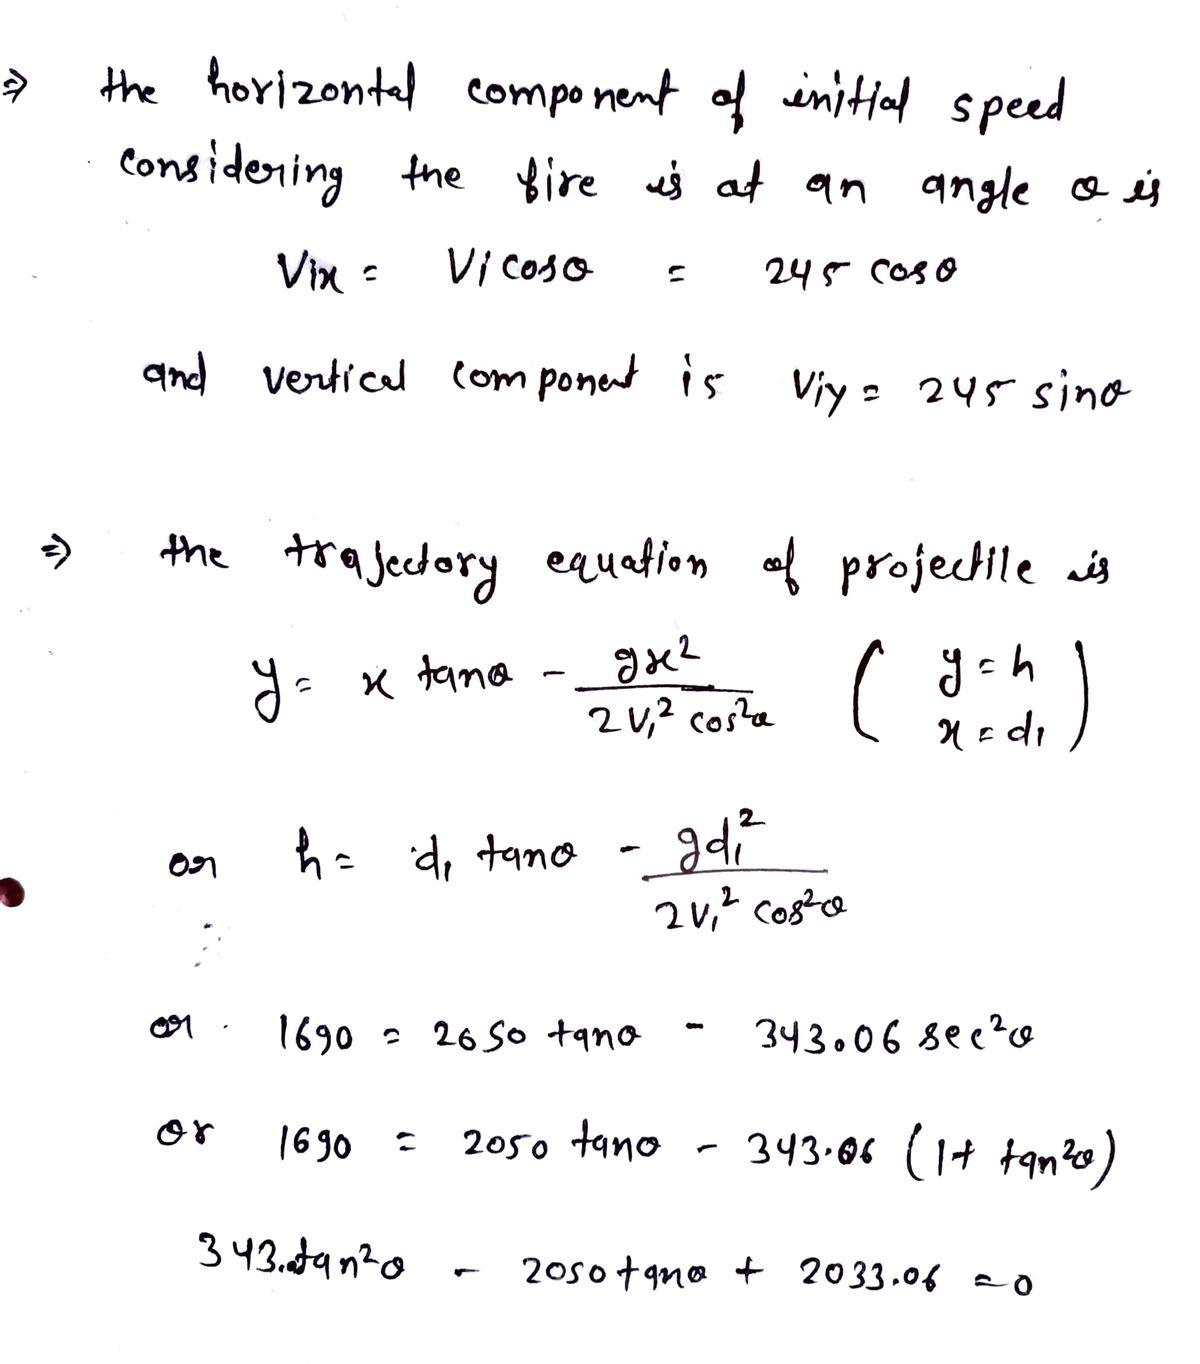 ⇒ the horizontal component of initial speed
considering the fire is at an angle θ is
Vix = Vi cosθ = 245 cosθ
and vertical component is Viy = 245 sinθ
⇒ the trajectory equation of projectile is
y = x tanθ - gx² / 2V₁² cos²θ ( y = h x = d₁ )
or h = d₁ tanθ - gd₁² / 2V₁² cos²θ
or 1690 = 2050 tanθ - 343.06 sec²θ
or 1690 = 2050 tanθ - 343.06 (1+ tan²θ)
343.tan²θ - 2050 tanθ + 2033.06 = 0